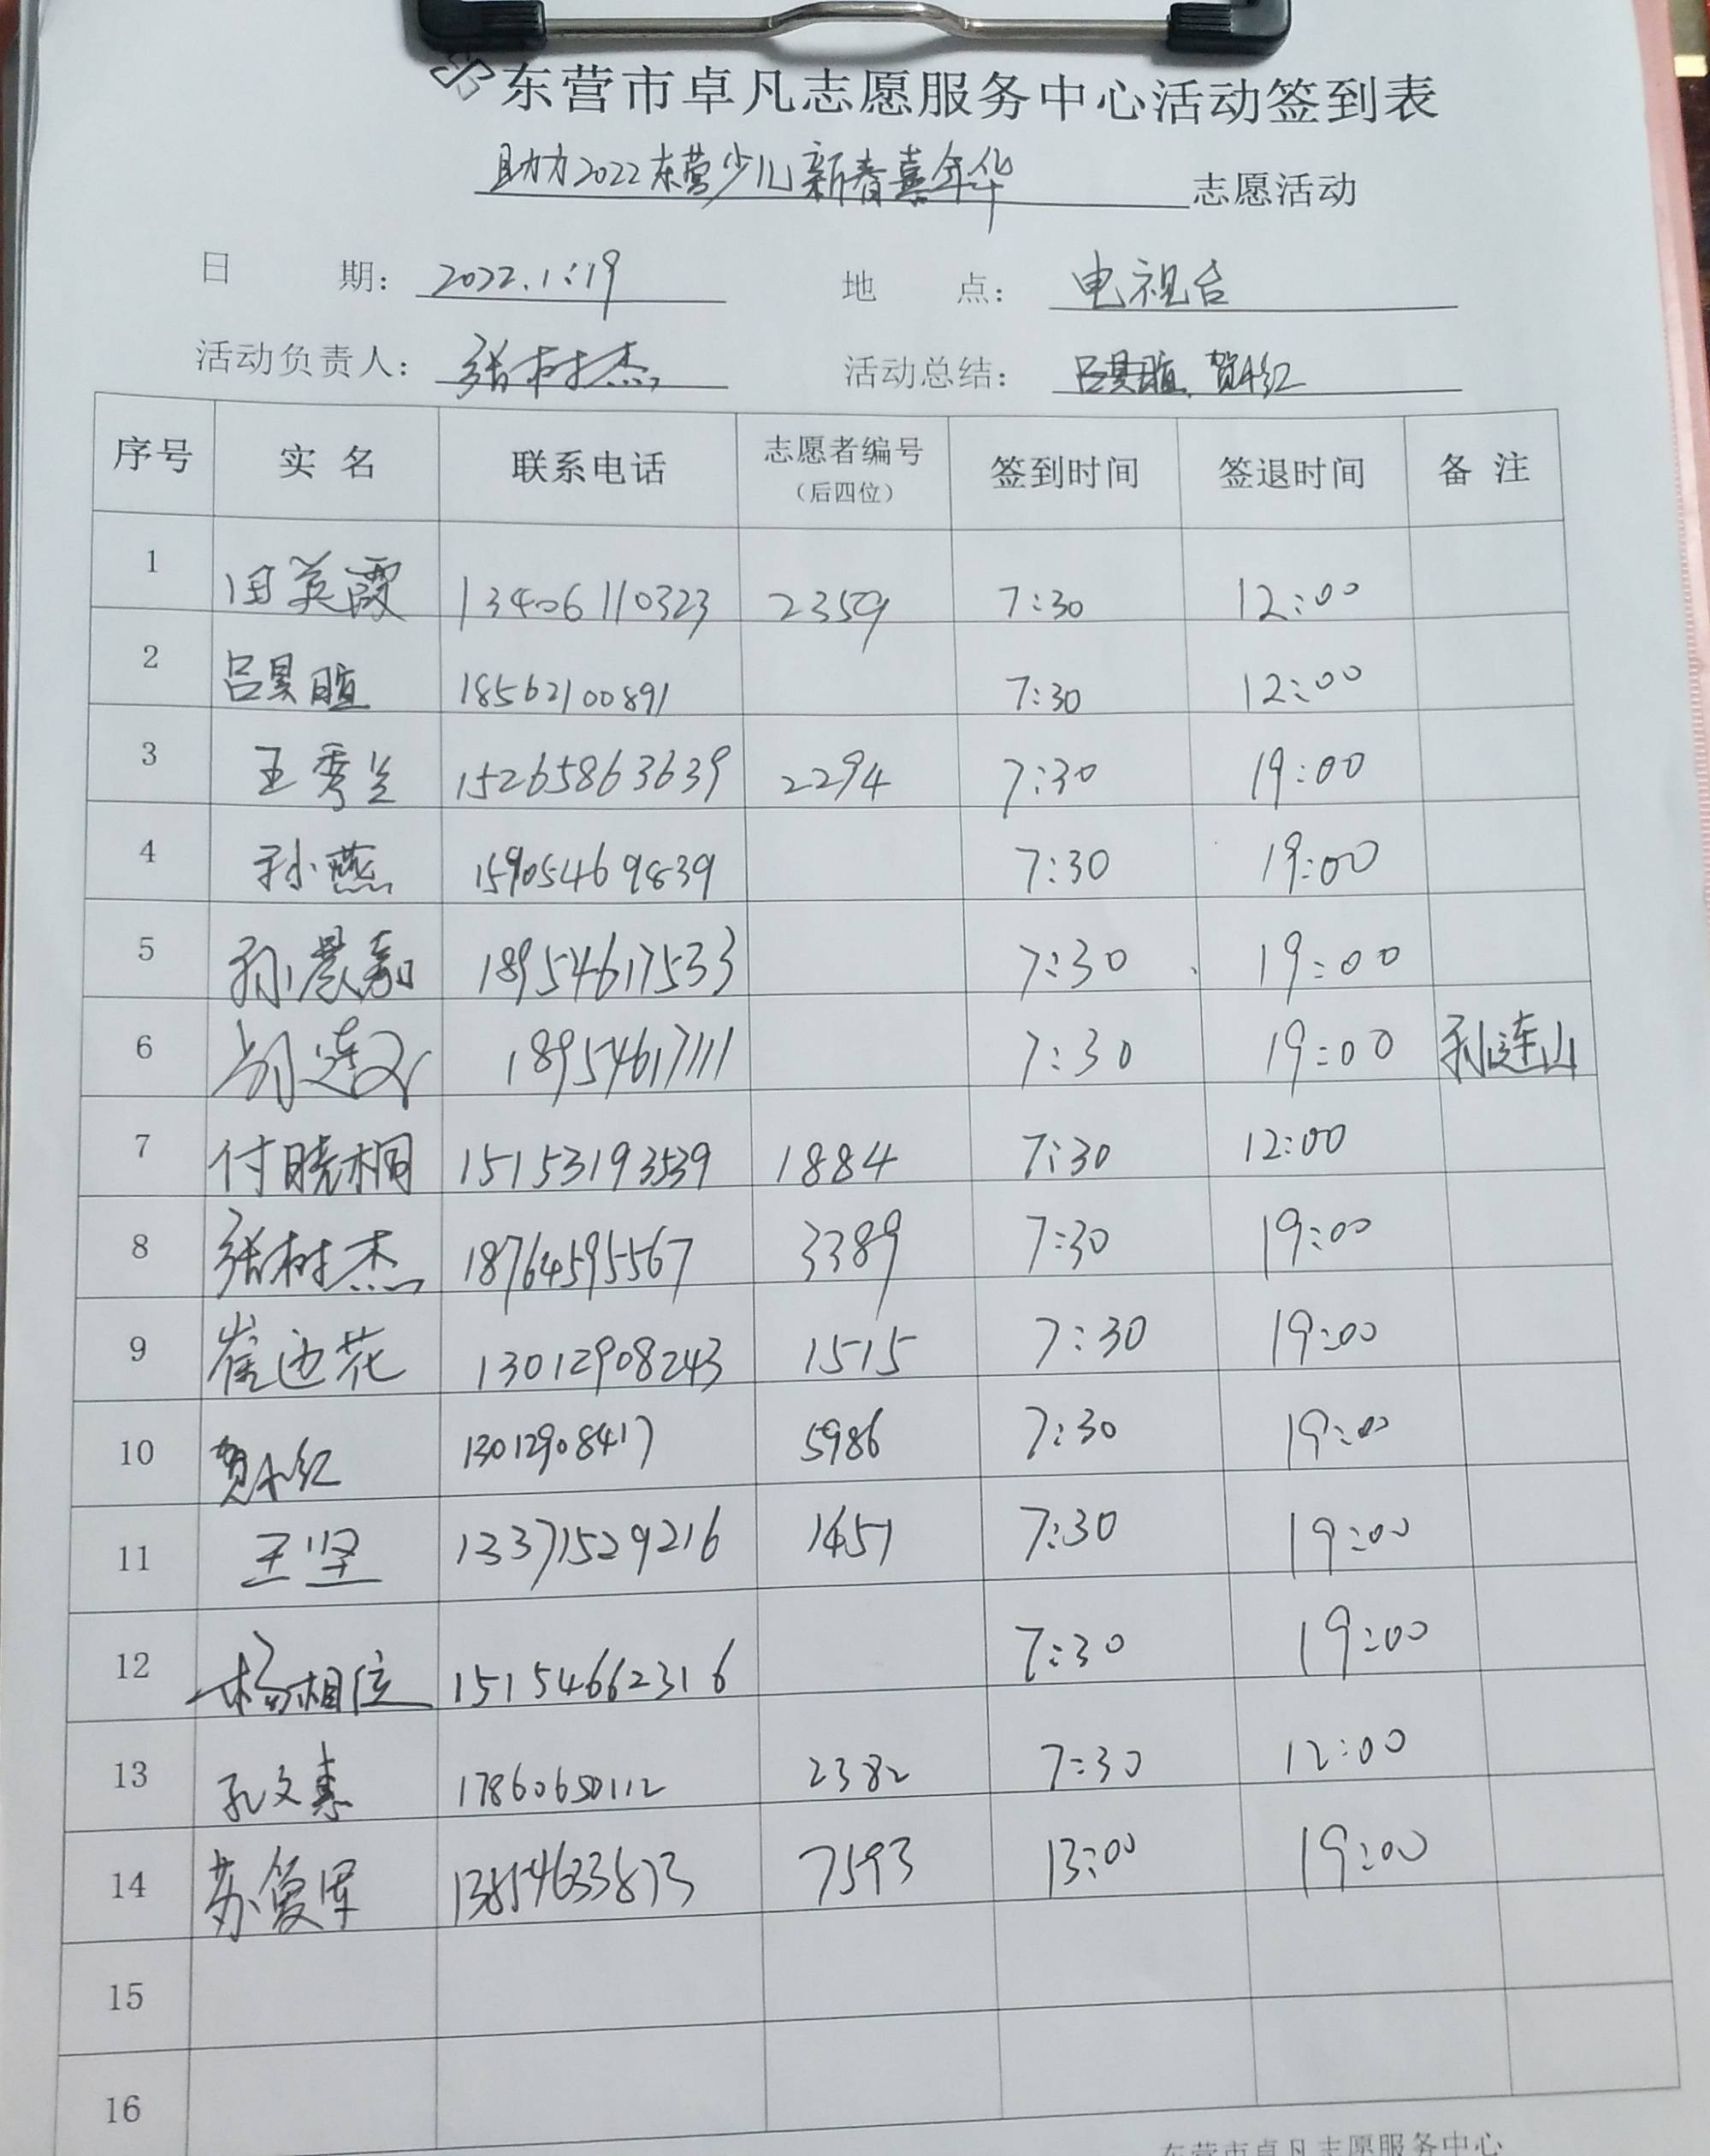 东营市卓凡志愿服务中心活动签到表
助力2022东营少儿新春嘉年华 志愿活动
日 期: 2022.1.19 地 点: 电视台
活动负责人: 张树杰 活动总结: 吕昊暄、贺小红
序号 实 名 联系电话 志愿者编号(后四位) 签到时间 签退时间 备 注
1 田英霞 13406110323 2359 7:30 12:00
2 吕昊暄 18562100891 7:30 12:00
3 王秀兰 15265863639 2294 7:30 19:00
4 孙燕 15905469839 7:30 19:00
5 孙晨 18954617533 7:30 19:00
6 18954617111 7:30 19:00 孙连山
7 付晓桐 15153193539 1884 7:30 12:00
8 张树杰 18764595567 3389 7:30 19:00
9 崔迎花 13012908243 1515 7:30 19:00
10 贺小红 13012908417 5986 7:30 19:00
11 王坚 13371529216 1451 7:30 19:00
12 杨相位 15154662316 7:30 19:00
13 孔文惠 17860650112 2382 7:30 12:00
14 苏俊军 13854633873 7593 13:00 19:00
15
16
东营市卓凡志愿服务中心